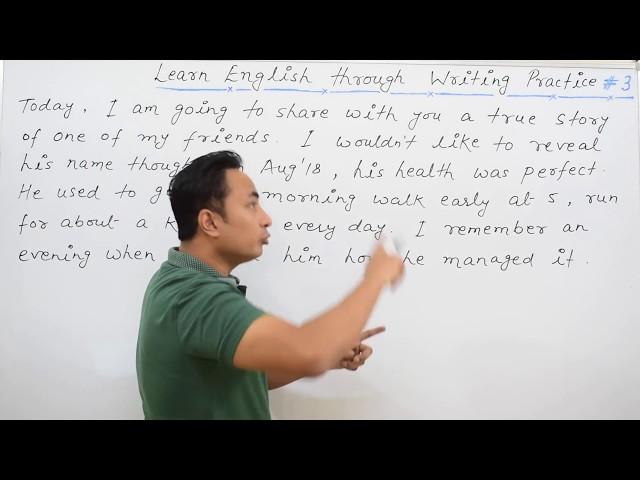 Learn English through Writing Practice #3
Today, I am going to share with you a true story
of one of my friends. I wouldn't like to reveal
his name though Aug'18, his health was perfect.
He used to morning walk early at 5, run
for about a every day. I remember an
evening when him how he managed it.